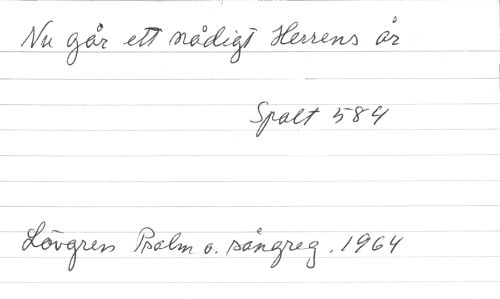 Nu går ett nådigt Herrens år
Spalt 584
Lövgren Psalm o. sångreg. 1964